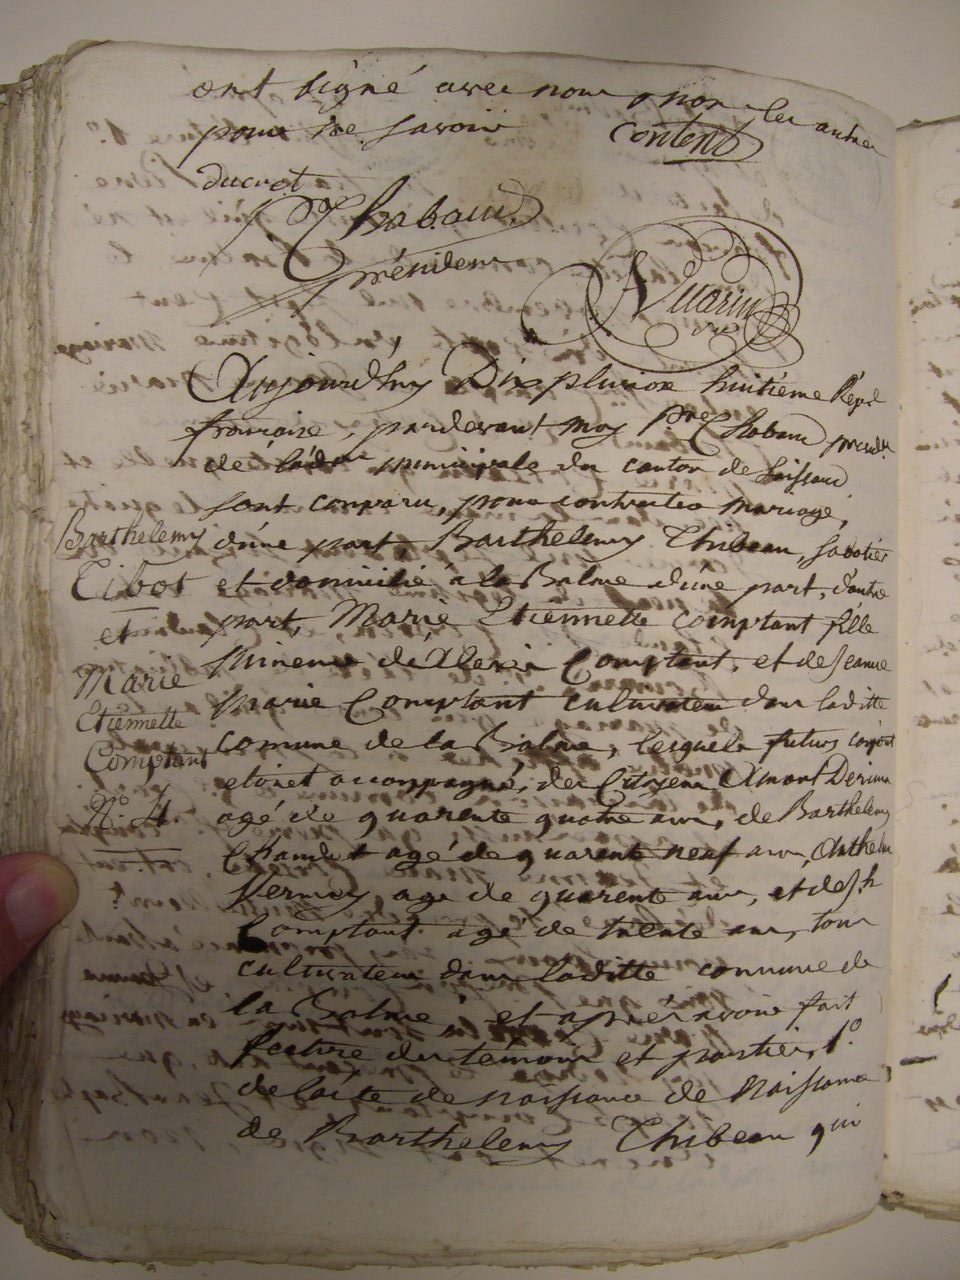 ont signé avec nous non les autres
pour ne savoir content
ducrot
Chabaud
président
Aujourd'huy Dix pluviose huitième Répub
francoise, pardevant moy Pre Chabaud présidt
de l'adon municipale du canton de
sont comparu, pour contracter mariage,
d'une part, Barthelemy Thibeau, sabotier
et domicilié à la Balme d'une part, d'autre
part, Marie Etiennette Comptant fille
mineure de Comptant, et de Jeanne
Marie Comptant cultivateur dans laditte
comune de la Balme, lesquels futurs conjoint
etoient accompagné, des Citoyens Amant
agé de quarente quatre ans, de Barthelemy
agé de quarente neuf ans, Anthelme
Vernay, age de quarente ans, et de Jh
Comptant agé de trente ans, tous
cultivateur dans laditte commune de
la Balme, et après avoir fait
lecture des témoins et parties, 1º
de l'acte de naissance de Naissance
de Barthelemy Thibeau qui
Barthelemy
Tibot
et
Marie
Etiennette
Comptant
Nº. 4.